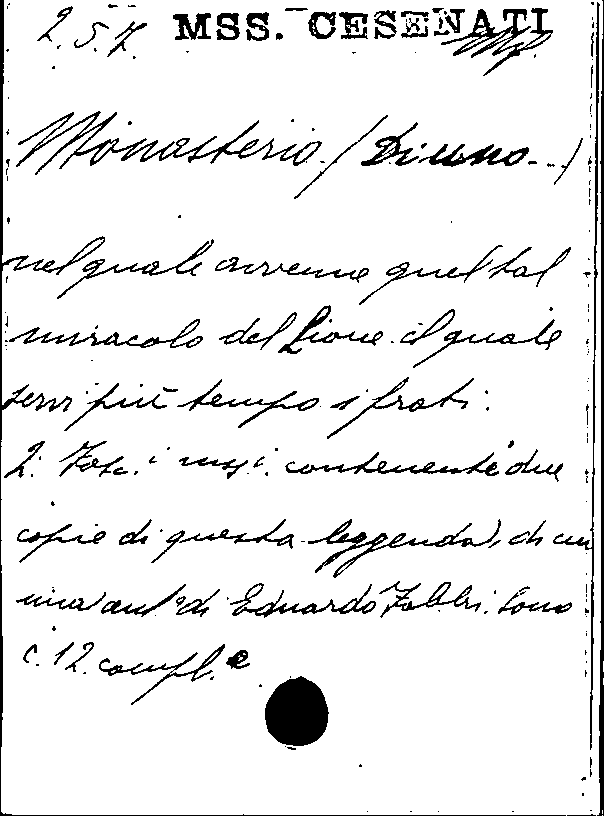 2.5.7. MSS. CESENATI
Monasterio (Di uno...)
nel quale avvenne quel tal
miracolo del Lione il quale
servì più tempo i frati.
2. Fasc.i mss.i contenente due
copie di questa leggenda, di cui
una aut.a di Eduardo Fabbri. Sono
c. 12. compl.e